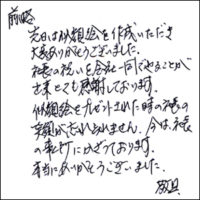 前略
先日は似顔絵を作成いただき
大変ありがとうございました。
社長の祝いを会社一同でやることが
出来とても感謝しております。
似顔絵をプレゼントされた時の社長の
笑顔が忘れられません。今は、社長
の車にかざっております。
本当にありがとうございました。
敬具